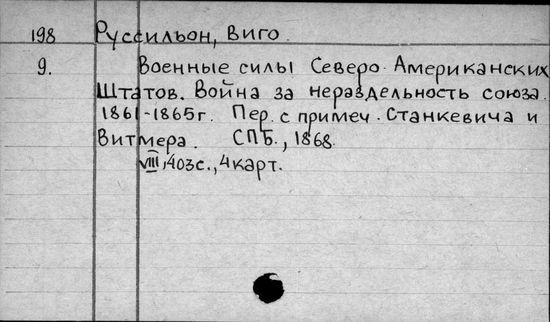 198 Руссильон, Виго.
9. Военные силы Северо-Американских
Штатов. Война за нераздельность союза.
1861-1865г. Пер. с примеч. Станкевича и
Витмера. СПБ., 1868.
VIII, 403с., 4 карт.